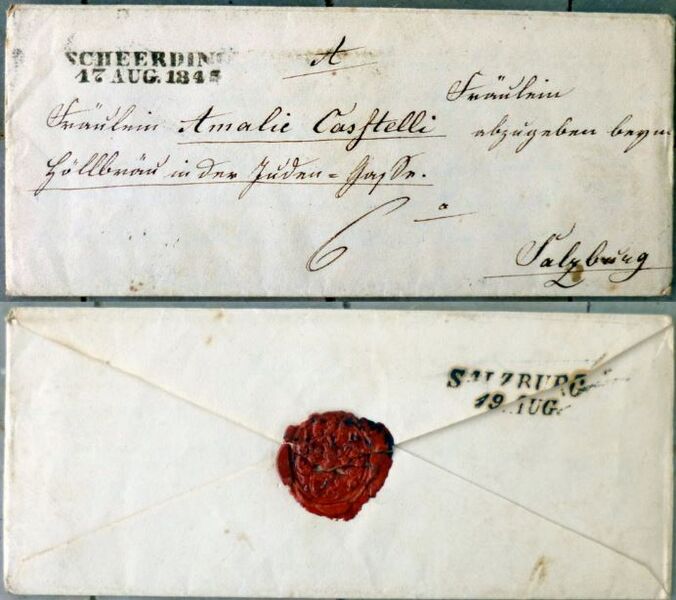 SCHEERDING
17 AUG. 184
A
Fräulein
Fräulein Amalie Casstelli abzugeben beym
Höllbräu in der Juden=Gasse.
6
a
Salzburg
SALZBURG
19. AUG.